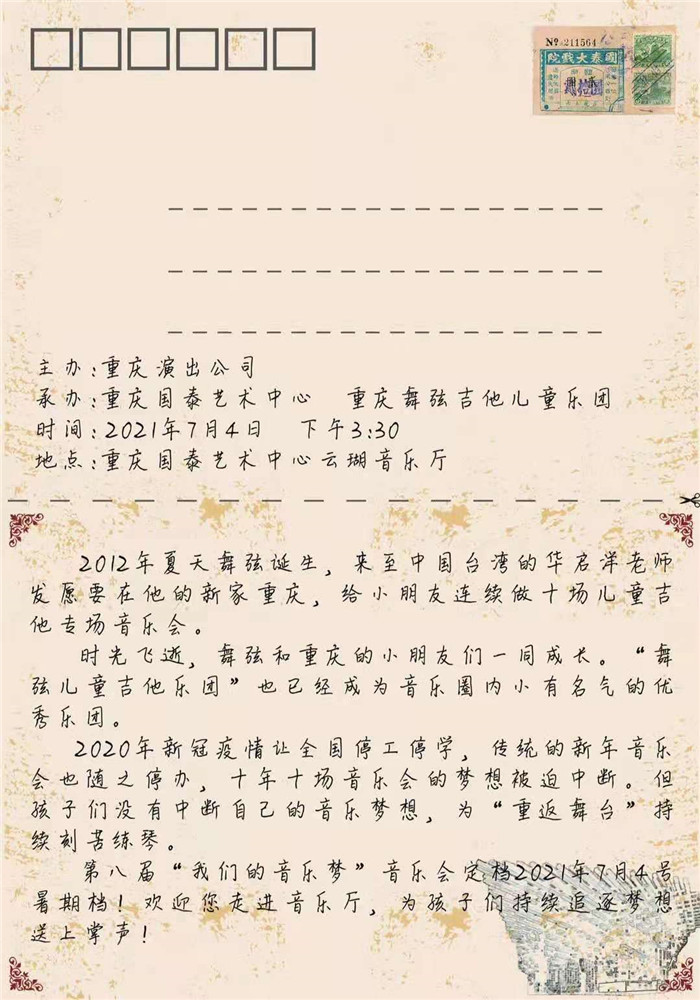 № 211564
國泰大戲院
主办:重庆演出公司
承办:重庆国泰艺术中心 重庆舞弦吉他儿童乐团
时间:2021年7月4日 下午3:30
地点:重庆国泰艺术中心云瑚音乐厅
2012年夏天舞弦诞生，来至中国台湾的华启洋老师
发愿要在他的新家重庆，给小朋友连续做十场儿童吉
他专场音乐会。
时光飞逝，舞弦和重庆的小朋友们一同成长。“舞
弦儿童吉他乐团”也已经成为音乐圈内小有名气的优
秀乐团。
2020年新冠疫情让全国停工停学，传统的新年音乐
会也随之停办，十年十场音乐会的梦想被迫中断。但
孩子们没有中断自己的音乐梦想，为“重返舞台”持
续刻苦练琴。
第八届“我们的音乐梦”音乐会定档2021年7月4号
暑期档！欢迎您走进音乐厅，为孩子们持续追逐梦想
送上掌声！